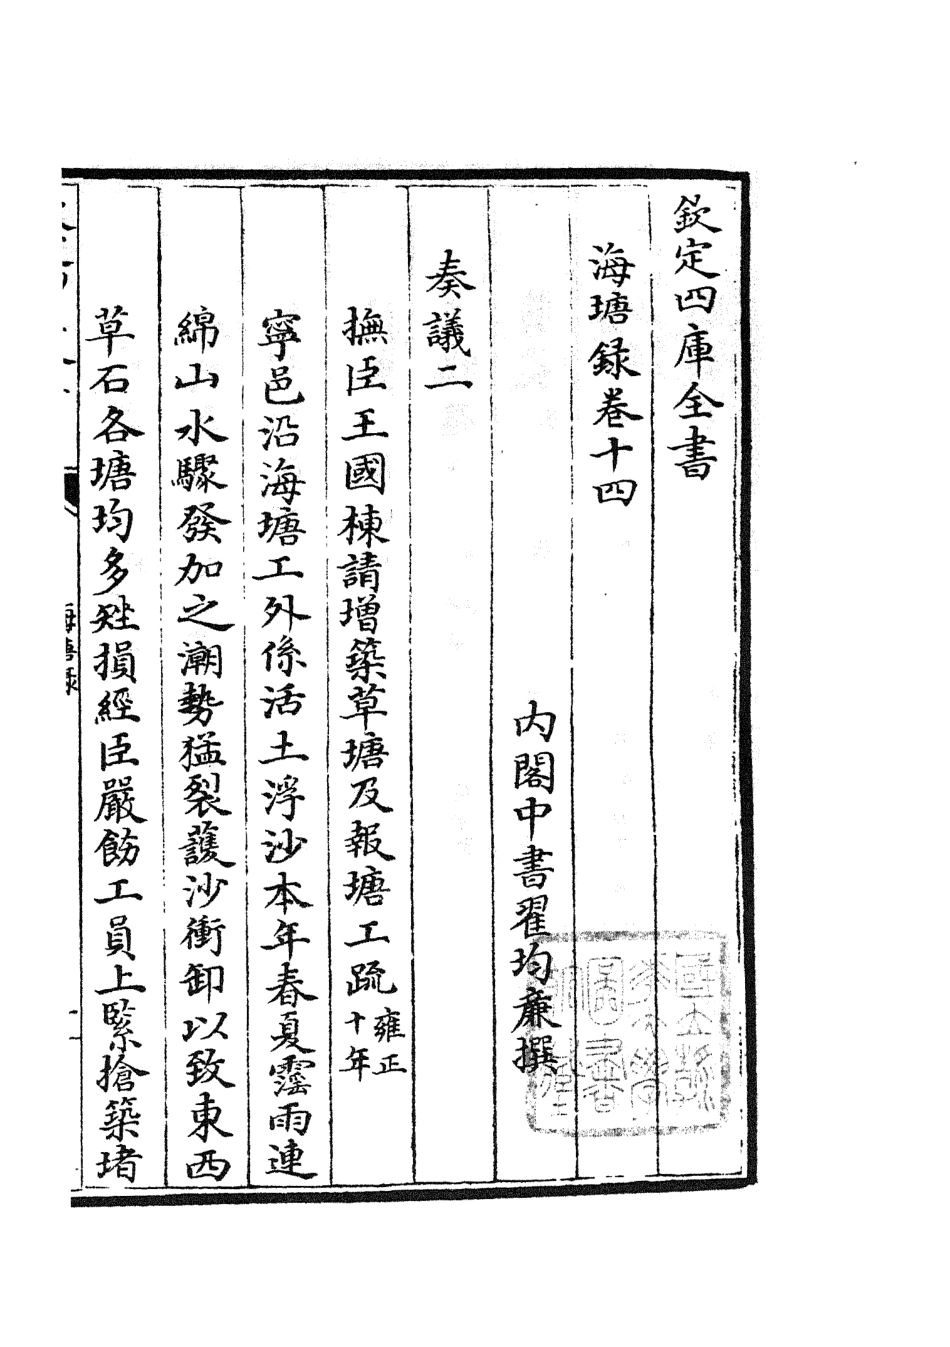 欽定四庫全書
海塘録卷十四
内閣中書翟均廉撰
奏議二
撫臣王國棟請增築草塘及報塘工疏雍正十年
寧邑沿海塘工外係活土浮沙本年春夏霪雨連
綿山水驟發加之潮勢猛裂護沙衝卸以致東西
草石各塘均多矬損經臣嚴飭工員上緊搶築堵
海塘録